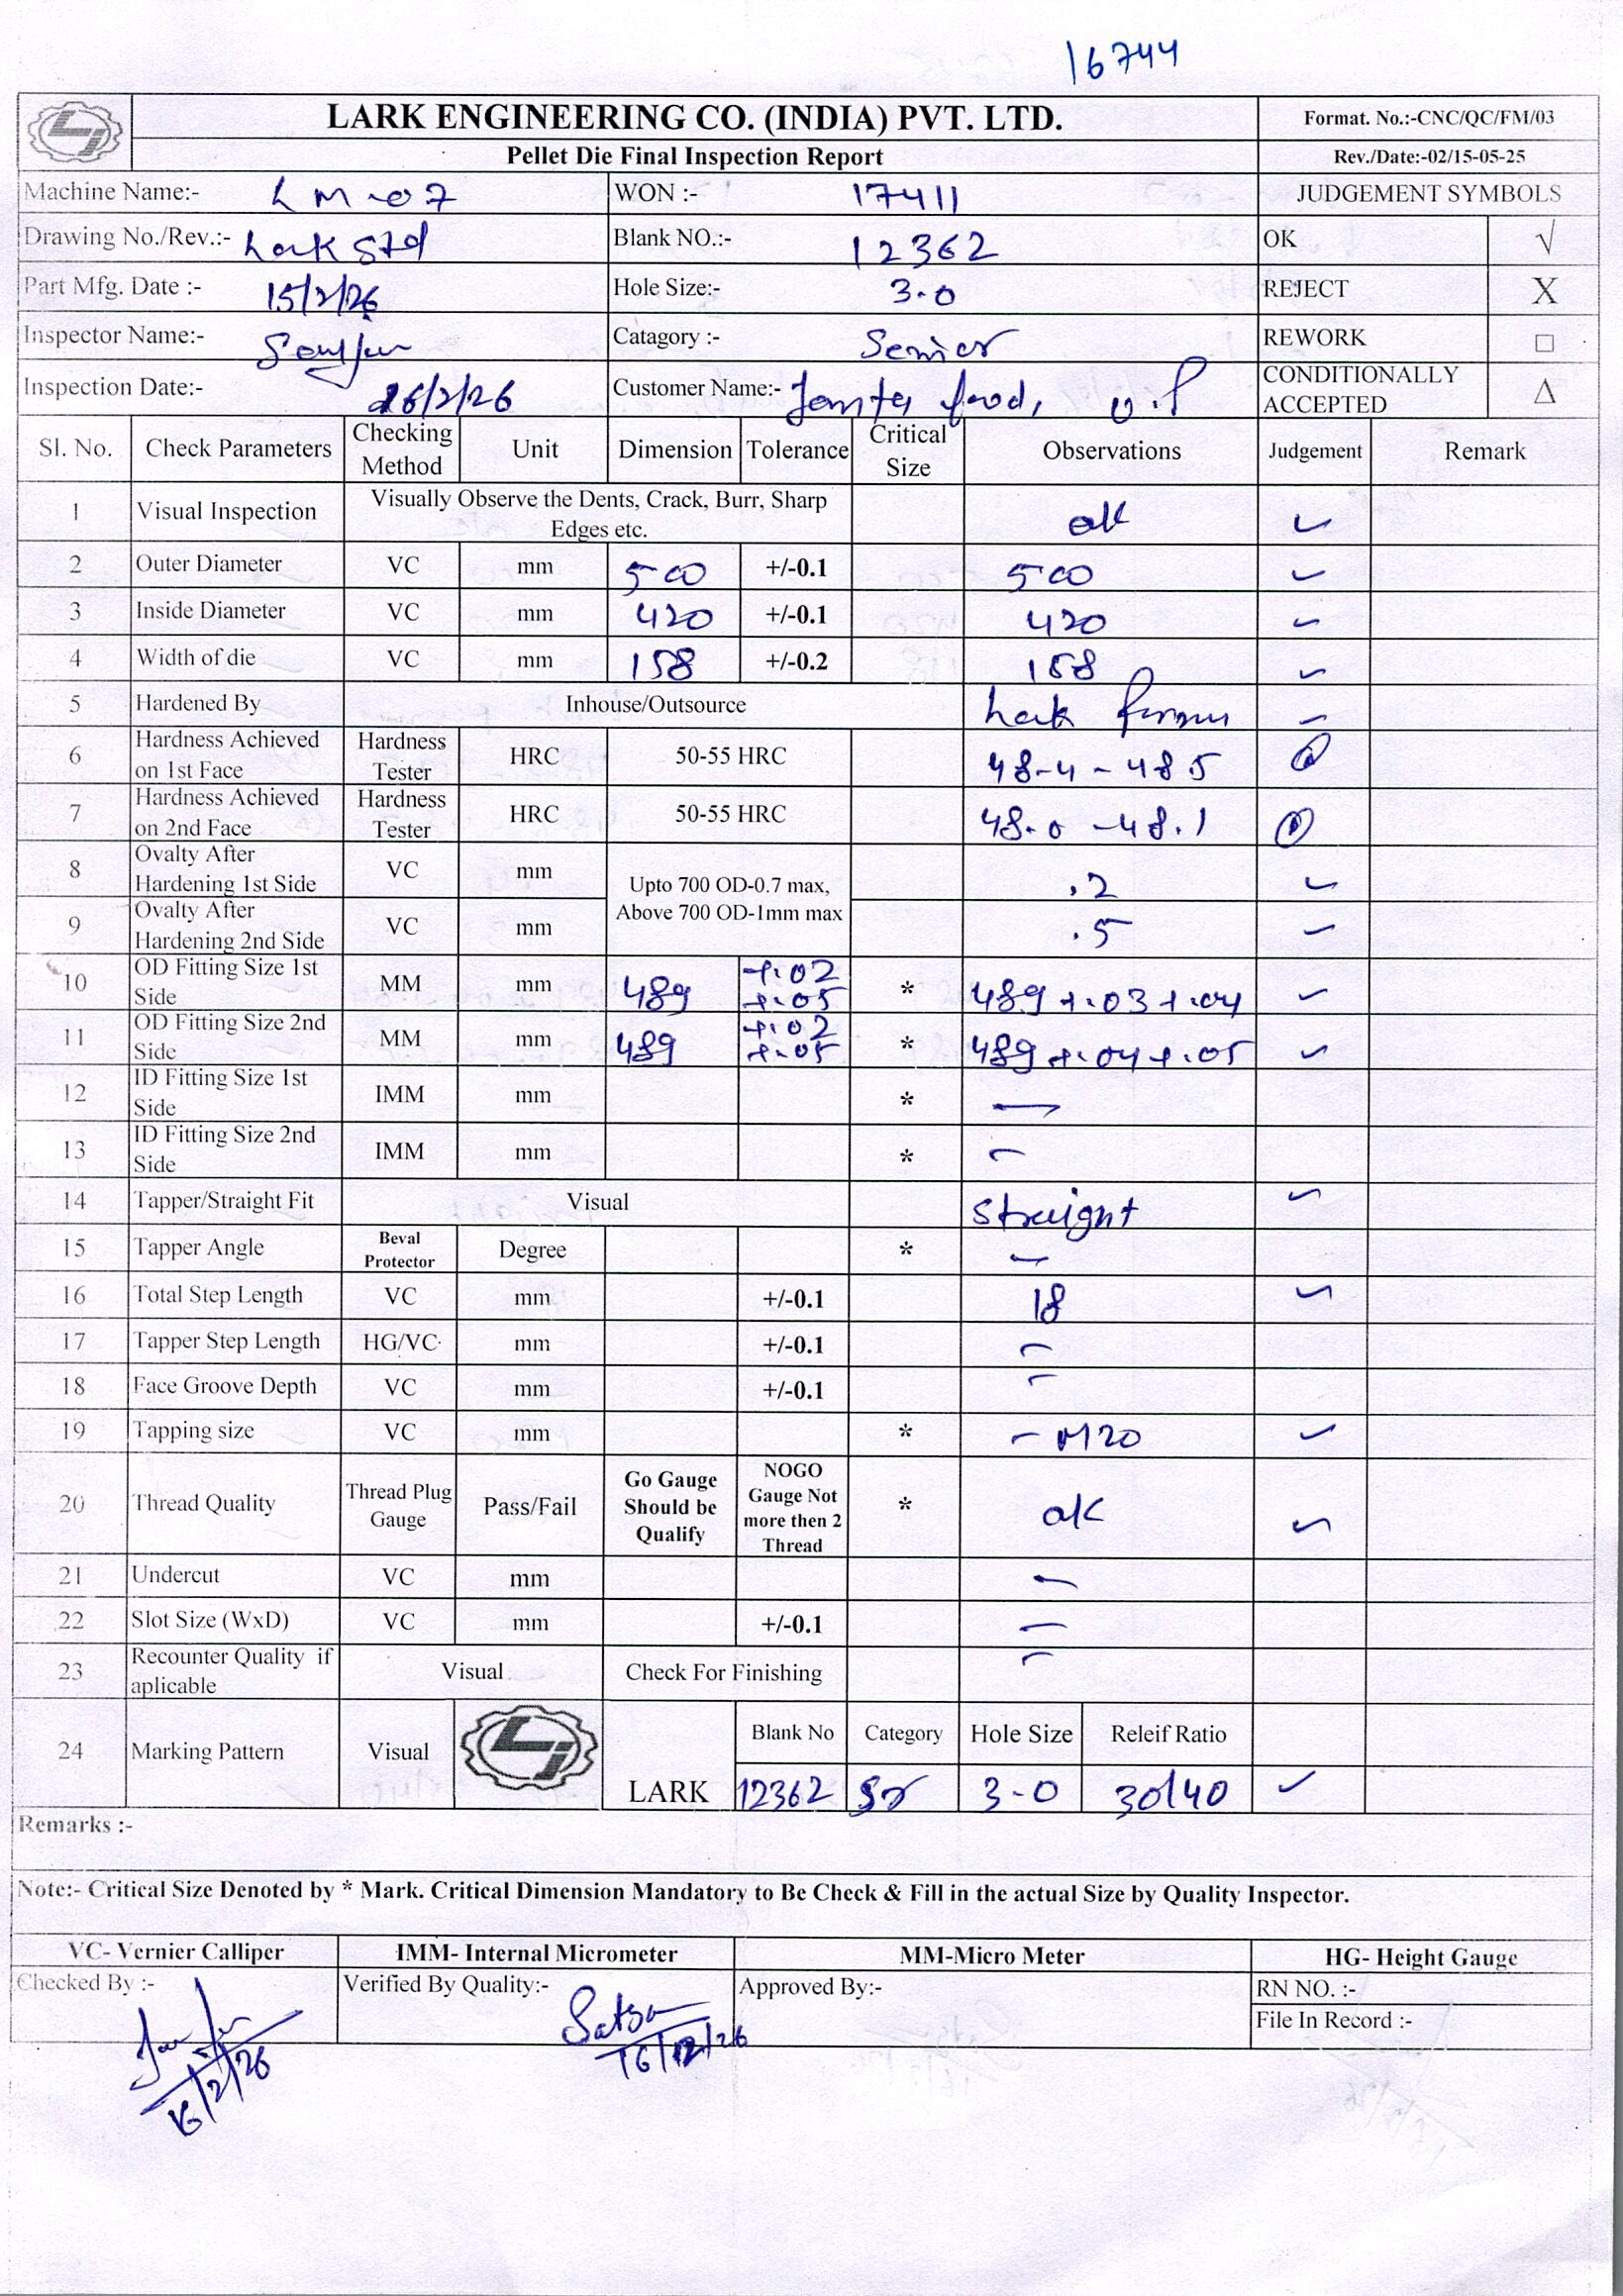 16744
LARK ENGINEERING CO. (INDIA) PVT. LTD. Format. No.:-CNC/QC/FM/03
Pellet Die Final Inspection Report Rev./Date:-02/15-05-25
Machine Name:- LM-07 WON :- 17411 JUDGEMENT SYMBOLS
Drawing No./Rev.:- Lark Std Blank NO.:- 12362 OK √
Part Mfg. Date :- 15/2/26 Hole Size:- 3.0 REJECT X
Inspector Name:- Catagory :- Senior REWORK □
Inspection Date:- 16/2/26 Customer Name:- food, U.P CONDITIONALLY ACCEPTED Δ
Sl. No. Check Parameters Checking Method Unit Dimension Tolerance Critical Size Observations Judgement Remark
1 Visual Inspection Visually Observe the Dents, Crack, Burr, Sharp Edges etc. ok ✓
2 Outer Diameter VC mm 500 +/-0.1 500 ✓
3 Inside Diameter VC mm 420 +/-0.1 420 ✓
4 Width of die VC mm 158 +/-0.2 158 ✓
5 Hardened By Inhouse/Outsource Lark ✓
6 Hardness Achieved on 1st Face Hardness Tester HRC 50-55 HRC 48-4 - 48.5
7 Hardness Achieved on 2nd Face Hardness Tester HRC 50-55 HRC 48.0 - 48.1
8 Ovalty After Hardening 1st Side VC mm Upto 700 OD-0.7 max, Above 700 OD-1mm max .2 ✓
9 Ovalty After Hardening 2nd Side VC mm .5 ✓
10 OD Fitting Size 1st Side MM mm 489 +.02 +.05 * 489 +.03 +.04 ✓
11 OD Fitting Size 2nd Side MM mm 489 +.02 +.05 * 489 +.04 +.05 ✓
12 ID Fitting Size 1st Side IMM mm * —
13 ID Fitting Size 2nd Side IMM mm * —
14 Tapper/Straight Fit Visual straight ✓
15 Tapper Angle Beval Protector Degree * —
16 Total Step Length VC mm +/-0.1 18 ✓
17 Tapper Step Length HG/VC mm +/-0.1 —
18 Face Groove Depth VC mm +/-0.1 —
19 Tapping size VC mm * - M20 ✓
20 Thread Quality Thread Plug Gauge Pass/Fail Go Gauge Should be Qualify NOGO Gauge Not more then 2 Thread * ok ✓
21 Undercut VC mm —
22 Slot Size (WxD) VC mm +/-0.1 —
23 Recounter Quality if aplicable Visual Check For Finishing —
24 Marking Pattern Visual LARK Blank No Category Hole Size Releif Ratio
12362 Sr 3-0 30/40 ✓
Remarks :-
Note:- Critical Size Denoted by * Mark. Critical Dimension Mandatory to Be Check & Fill in the actual Size by Quality Inspector.
VC- Vernier Calliper IMM- Internal Micrometer MM-Micro Meter HG- Height Gauge
Checked By :- Verified By Quality:- Approved By:- RN NO. :-
File In Record :-
16/2/26